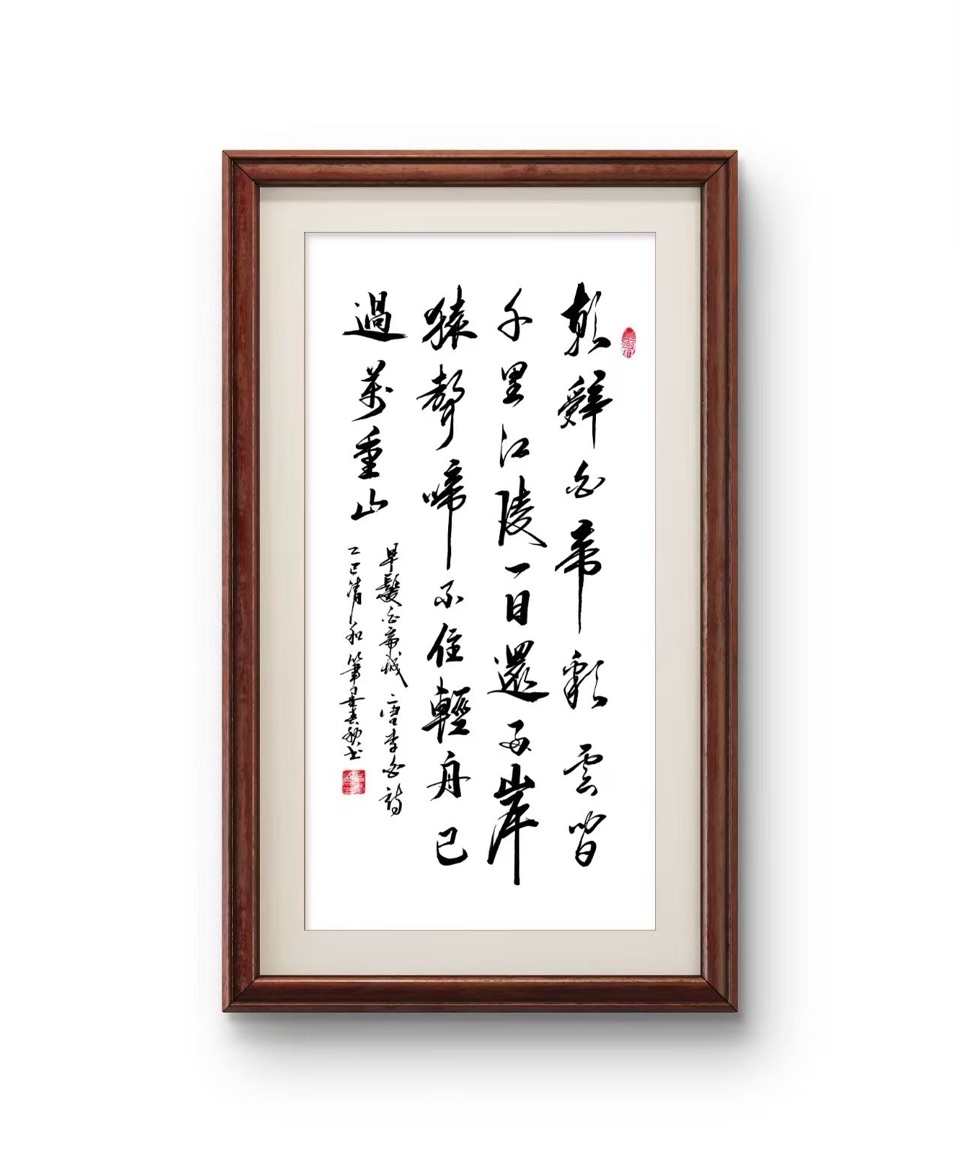 朝辭白帝彩雲間
千里江陵一日還兩岸
猿聲啼不住輕舟已
過萬重山
早髮白帝城 唐李白詩
乙巳清和 筆墨書